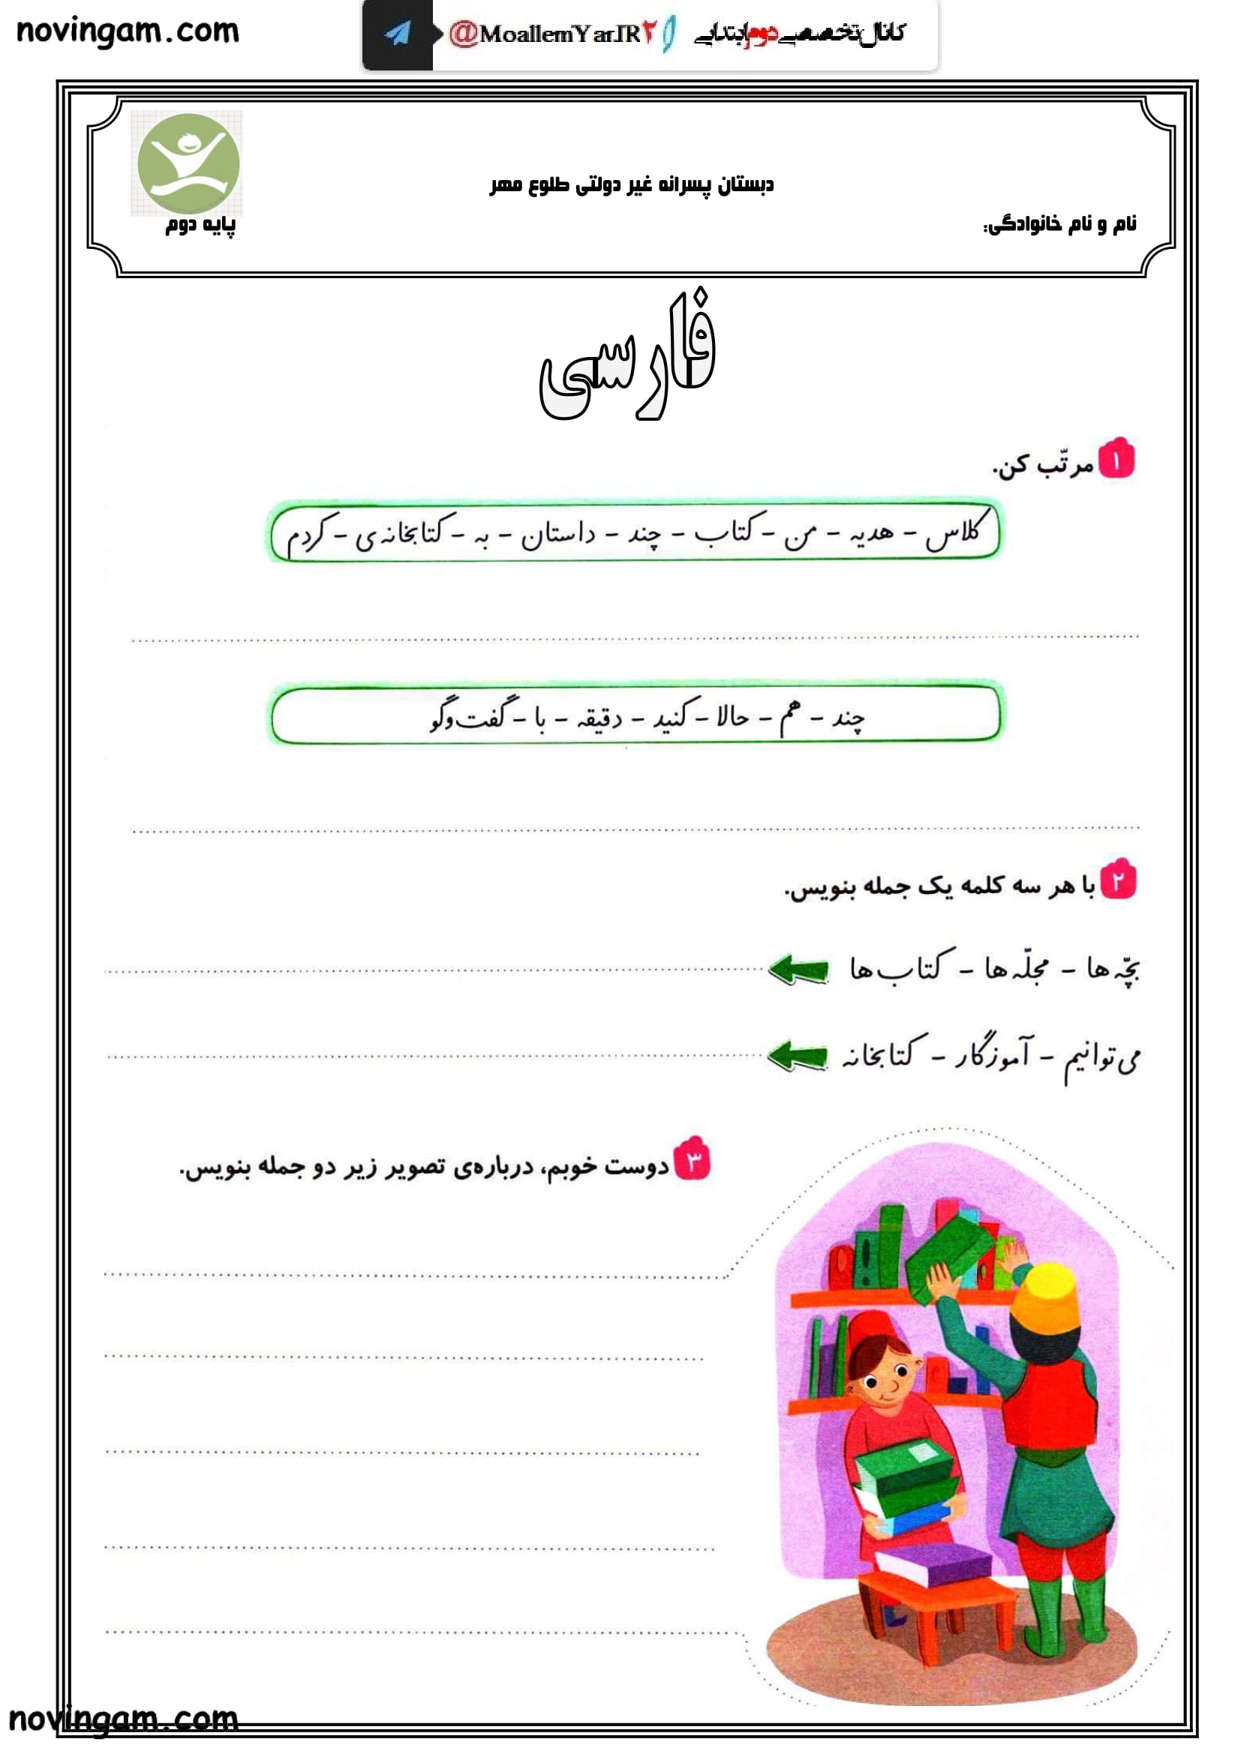 novingam.com
@MoallemYarIR2 کانال تخصصی دوم ابتدایی
دبستان پسرانه غیر دولتی طلوع مهر
نام و نام خانوادگی:
پایه دوم
فارسی
۱ مرتّب کن.
کلاس - هدیه - من - کتاب - چند - داستان - به - کتابخانه‌ی - کردم
چند - هم - حالا - کنید - دقیقه - با - گفت‌وگو
۲ با هر سه کلمه یک جمله بنویس.
بچّه‌ها - مجلّه‌ها - کتاب‌ها
می‌توانیم - آموزگار - کتابخانه
۳ دوست خوبم، درباره‌ی تصویر زیر دو جمله بنویس.
novingam.com